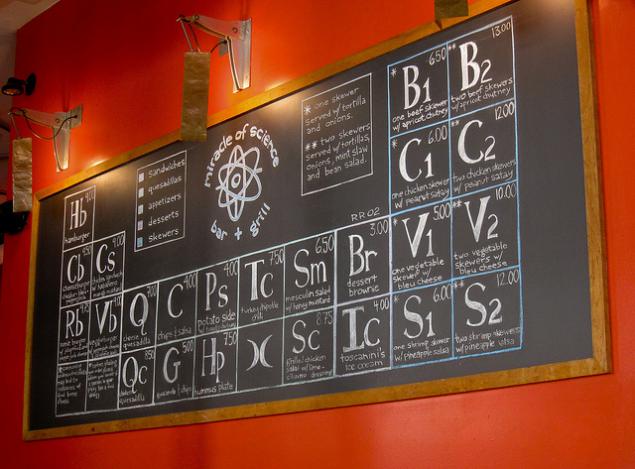 miracle of science
bar + grill
Sandwiches
quesadillas
appetizers
desserts
skewers
* one skewer
served w/tortilla
and onions.
** two skewers
served w/tortillas,
onions, mint slaw
and bean salad.
RR02
* 6.50
B1
one beef skewer
w/ apricot chutney
** 13.00
B2
two beef skewers
w/ apricot chutney
* 6.00
C1
one chicken skewer
w/ peanut satay
** 12.00
C2
two chicken skewers
w/ peanut satay
Hb
hamburger
Cb
Cs
9.00
Q
cheese
quesadilla
C
4.00
chips & salsa
Ps
4.00
potato side
Tc
7.50
turkey chipotle
chili
Sm
6.50
mesculin salad
w/ honey mustard
Br
3.00
dessert
brownie
* 5.00
V1
one vegetable
skewer w/
bleu cheese
** 10.00
V2
two vegetable
skewers w/
bleu cheese
Rb
Vb
Qc
8.50
quesadilla
G
5.00
Hp
7.50
hummus plate
Sc
8.75
grilled chicken
salad w/ lime-
cilantro dressing
Ic
4.00
toscanini's
ice cream
* 6.00
S1
one shrimp skewer
w/pineapple salsa
** 12.00
S2
two shrimp skewers
w/ pineapple salsa